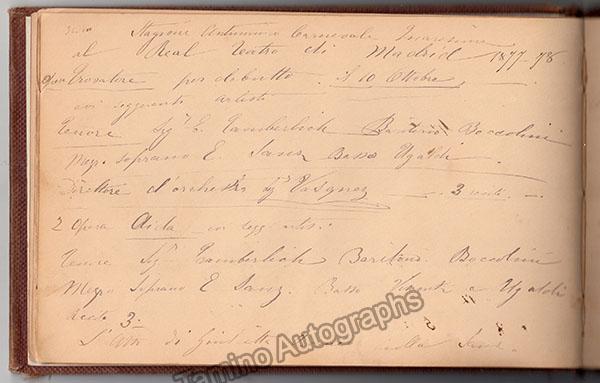 Stagione Autunno Carnevale Quaresima
al Real Teatro di Madrid 1877-78
Opera Trovatore per debutto. Il 10 Ottobre
coi seguenti artisti
Tenore Sigr. E. Tamberlich Baritono Boccolini
Mezzo soprano E. Sanz Basso Ugalde
Direttore d'orchestra Sigr Vasquez 3 recite.
2 Opera Aida coi seguenti:
Tenore Sigr. Tamberlich Baritono. Boccolini
Mezzo Soprano E Sanz. Basso e Ugalde
Recite 3.
L'Atto di
Tamino Autographs